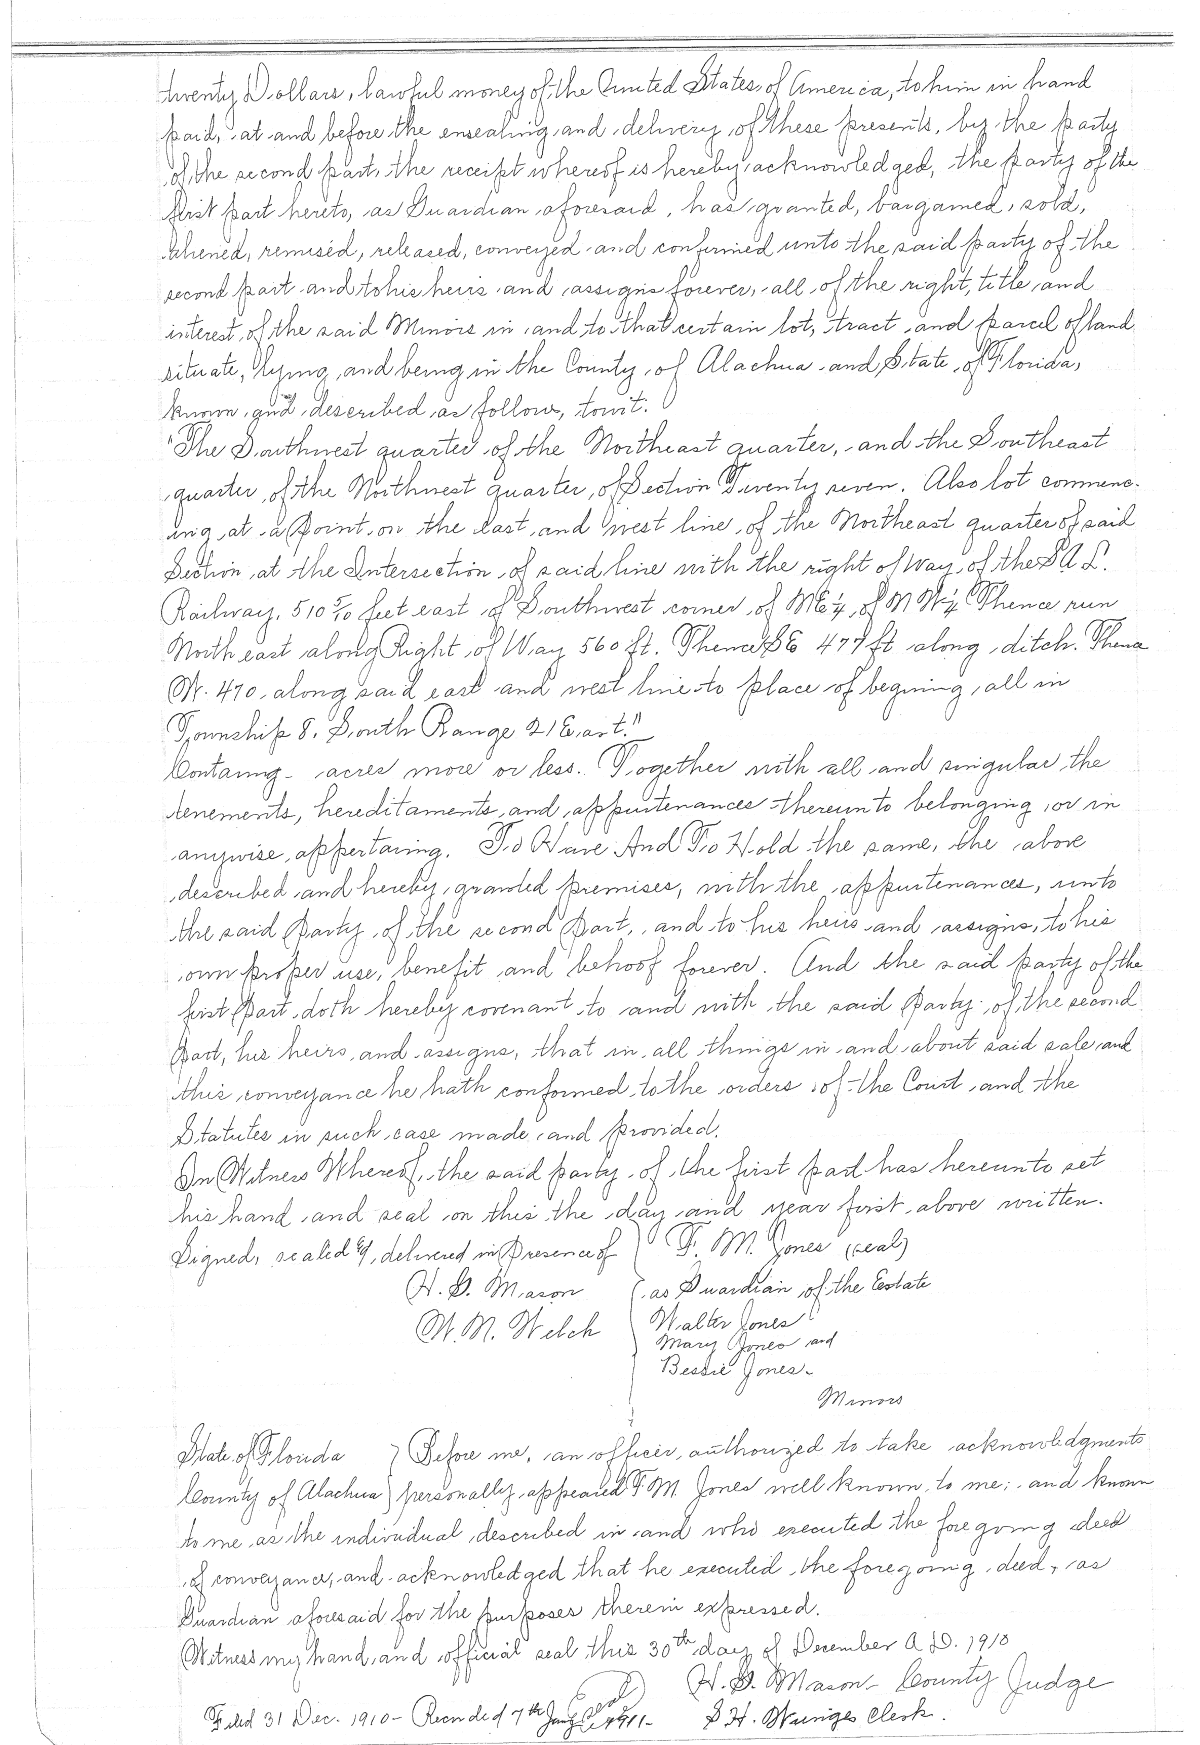 twenty Dollars, lawful money of the United States of America, to him in hand
paid, at and before the ensealing and delivery of these presents, by the party
of the second part, the receipt whereof is hereby acknowledged, the party of the
first part hereto, as Guardian aforesaid, has granted, bargained, sold,
aliened, remised, released, conveyed and confirmed unto the said party of the
second part and to his heirs and assigns forever, all of the right, title and
interest of the said Minors in and to that certain lot, tract and parcel of land
situate, lying and being in the County of Alachua and State of Florida,
known and described as follows, towit:
"The Southwest quarter of the Northeast quarter, and the Southeast
quarter of the Northwest quarter, of Section Twenty seven. Also lot commenc-
ing at a Point on the east and west line of the Northeast quarter of said
Section at the Intersection of said line with the right of Way of the S A L.
Railway, 510 5/10 feet east of Southwest corner of NE 1/4 of N W 1/4 Thence run
North east along Right of Way 560 ft. Thence SE 477 ft along ditch. Thence
W. 470 along said east and west line to place of begining, all in
Township 8, South Range 21 East."
Containg - acres more or less. Together with all and singular the
tenements, hereditaments and appurtenances thereunto belonging or in
anywise appertaing. To Have And To Hold the same, the above
described and hereby granted premises, with the appurtenances, unto
the said Party of the second Part, and to his heirs and assigns, to his
own proper use, benefit and behoof forever. And the said party of the
first Part doth hereby covenant to and with the said Party of the second
Part, his heirs and assigns, that in all things in and about said sale and
this conveyance he hath conformed to the orders of the Court and the
Statutes in such case made and provided.
In Witness Whereof, the said party of the first part has hereunto set
his hand and seal on this the day and year first above written.
Signed, sealed & delivered in Presence of F. M. Jones (seal)
H. G. Mason as Guardian of the Estate
W. N. Welch Walter Jones
Mary Jones and
Bessie Jones.
Minors
State of Florida Before me, an officer authorized to take acknowledgments
County of Alachua personally appeared F M Jones well known to me; and known
to me as the individual described in and who executed the foregoing deed
of conveyance, and acknowledged that he executed the foregoing deed, as
Guardian aforesaid for the purposes therein expressed.
Witness my hand and official seal this 30th day of December A D. 1910
H. G. Mason - County Judge
Filed 31 Dec. 1910 - Recorded 7th Jany 1911 - S. H. Wienges Clerk.